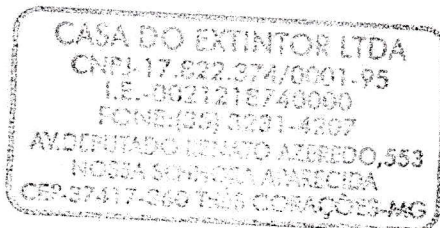 CASA DO EXTINTOR LTDA
CNPJ-17.822.374/0001-95
I.E.-0021218740000
FONE:(35) 3231-4207
AV.DEPUTADO RENATO AZEREDO,553
NOSSA SENHORA APARECIDA
CEP-37417-260 TRES CORAÇÕES-MG